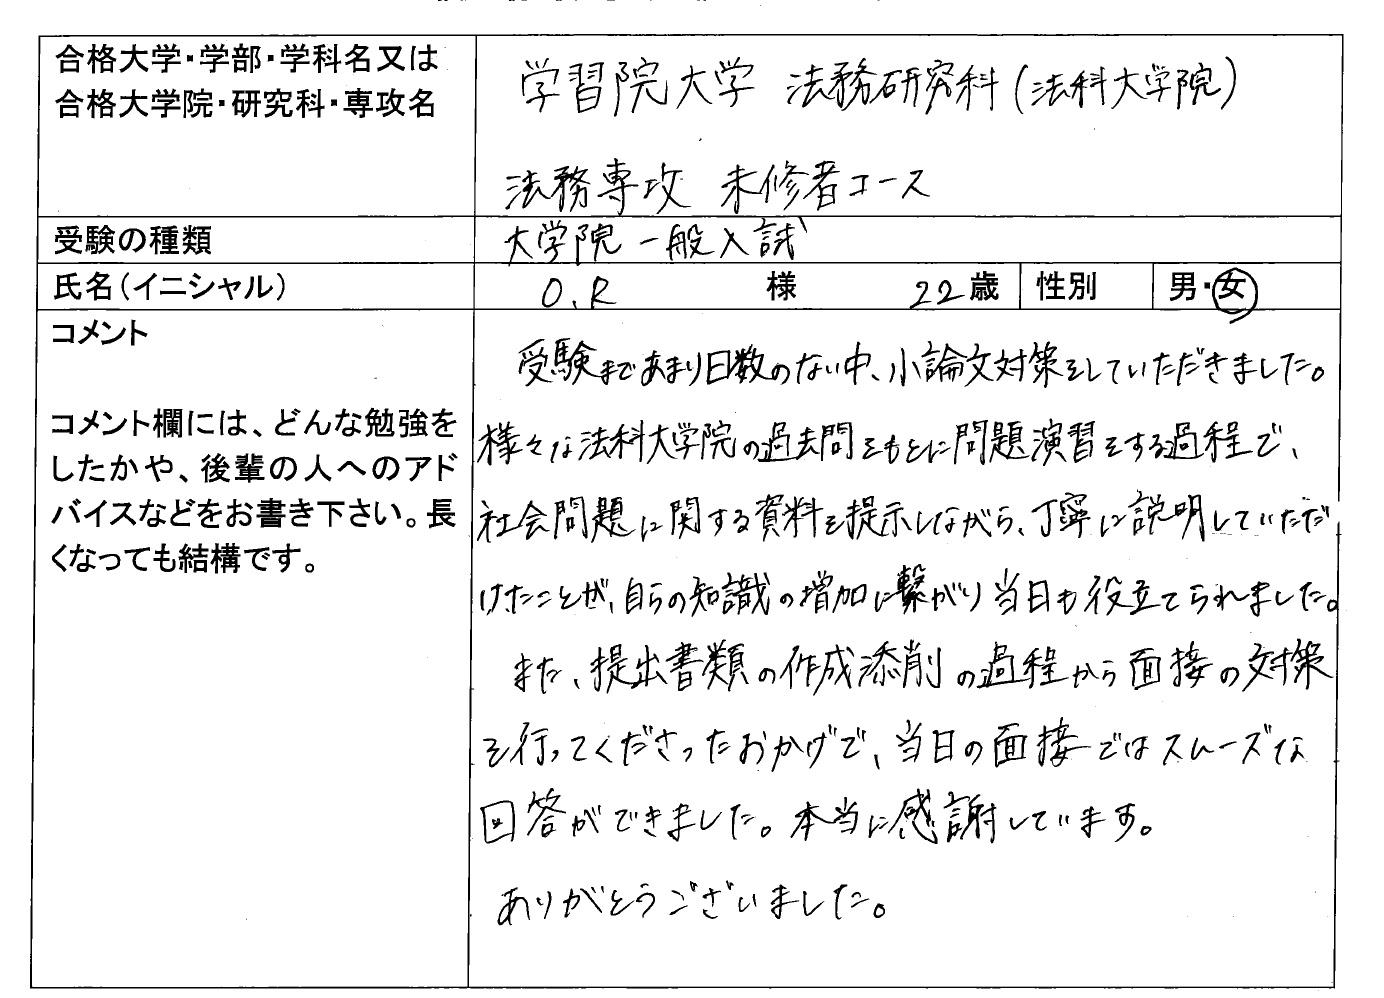 合格大学・学部・学科名又は
合格大学院・研究科・専攻名
学習院大学 法務研究科(法科大学院)
法務専攻 未修者コース
受験の種類
大学院 一般入試
氏名(イニシャル) O.R 様 22歳 性別 男・女
コメント
コメント欄には、どんな勉強を
したかや、後輩の人へのアド
バイスなどをお書き下さい。長
くなっても結構です。
受験まであまり日数のない中、小論文対策をしていただきました。
様々な法科大学院の過去問をもとに問題演習をする過程で、
社会問題に関する資料を提示しながら、丁寧に説明していただ
けたことが、自らの知識の増加に繋がり当日も役立てられました。
また、提出書類の作成添削の過程から面接の対策
を行ってくださったおかげで、当日の面接ではスムーズな
回答ができました。本当に感謝しています。
ありがとうございました。